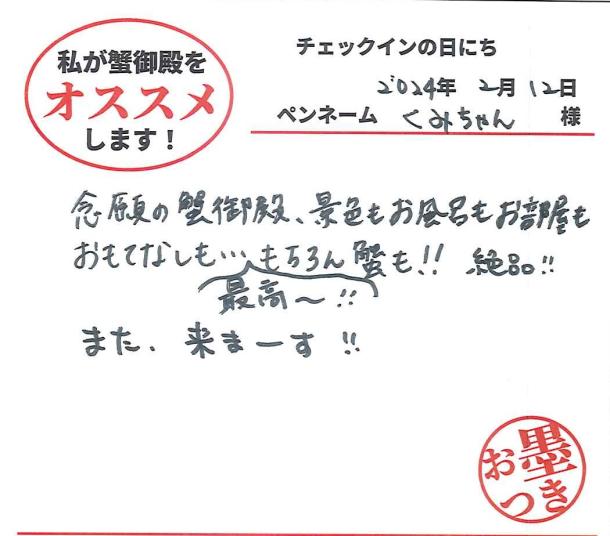 私が蟹御殿を
オススメ
します！
チェックインの日にち
2024年 2月 12日
ペンネーム くみちゃん 様
念願の蟹御殿、景色もお風呂もお部屋も
おもてなしも… もちろん蟹も!! 絶品!!
最高～!!
また、来まーす!!
お墨
つき